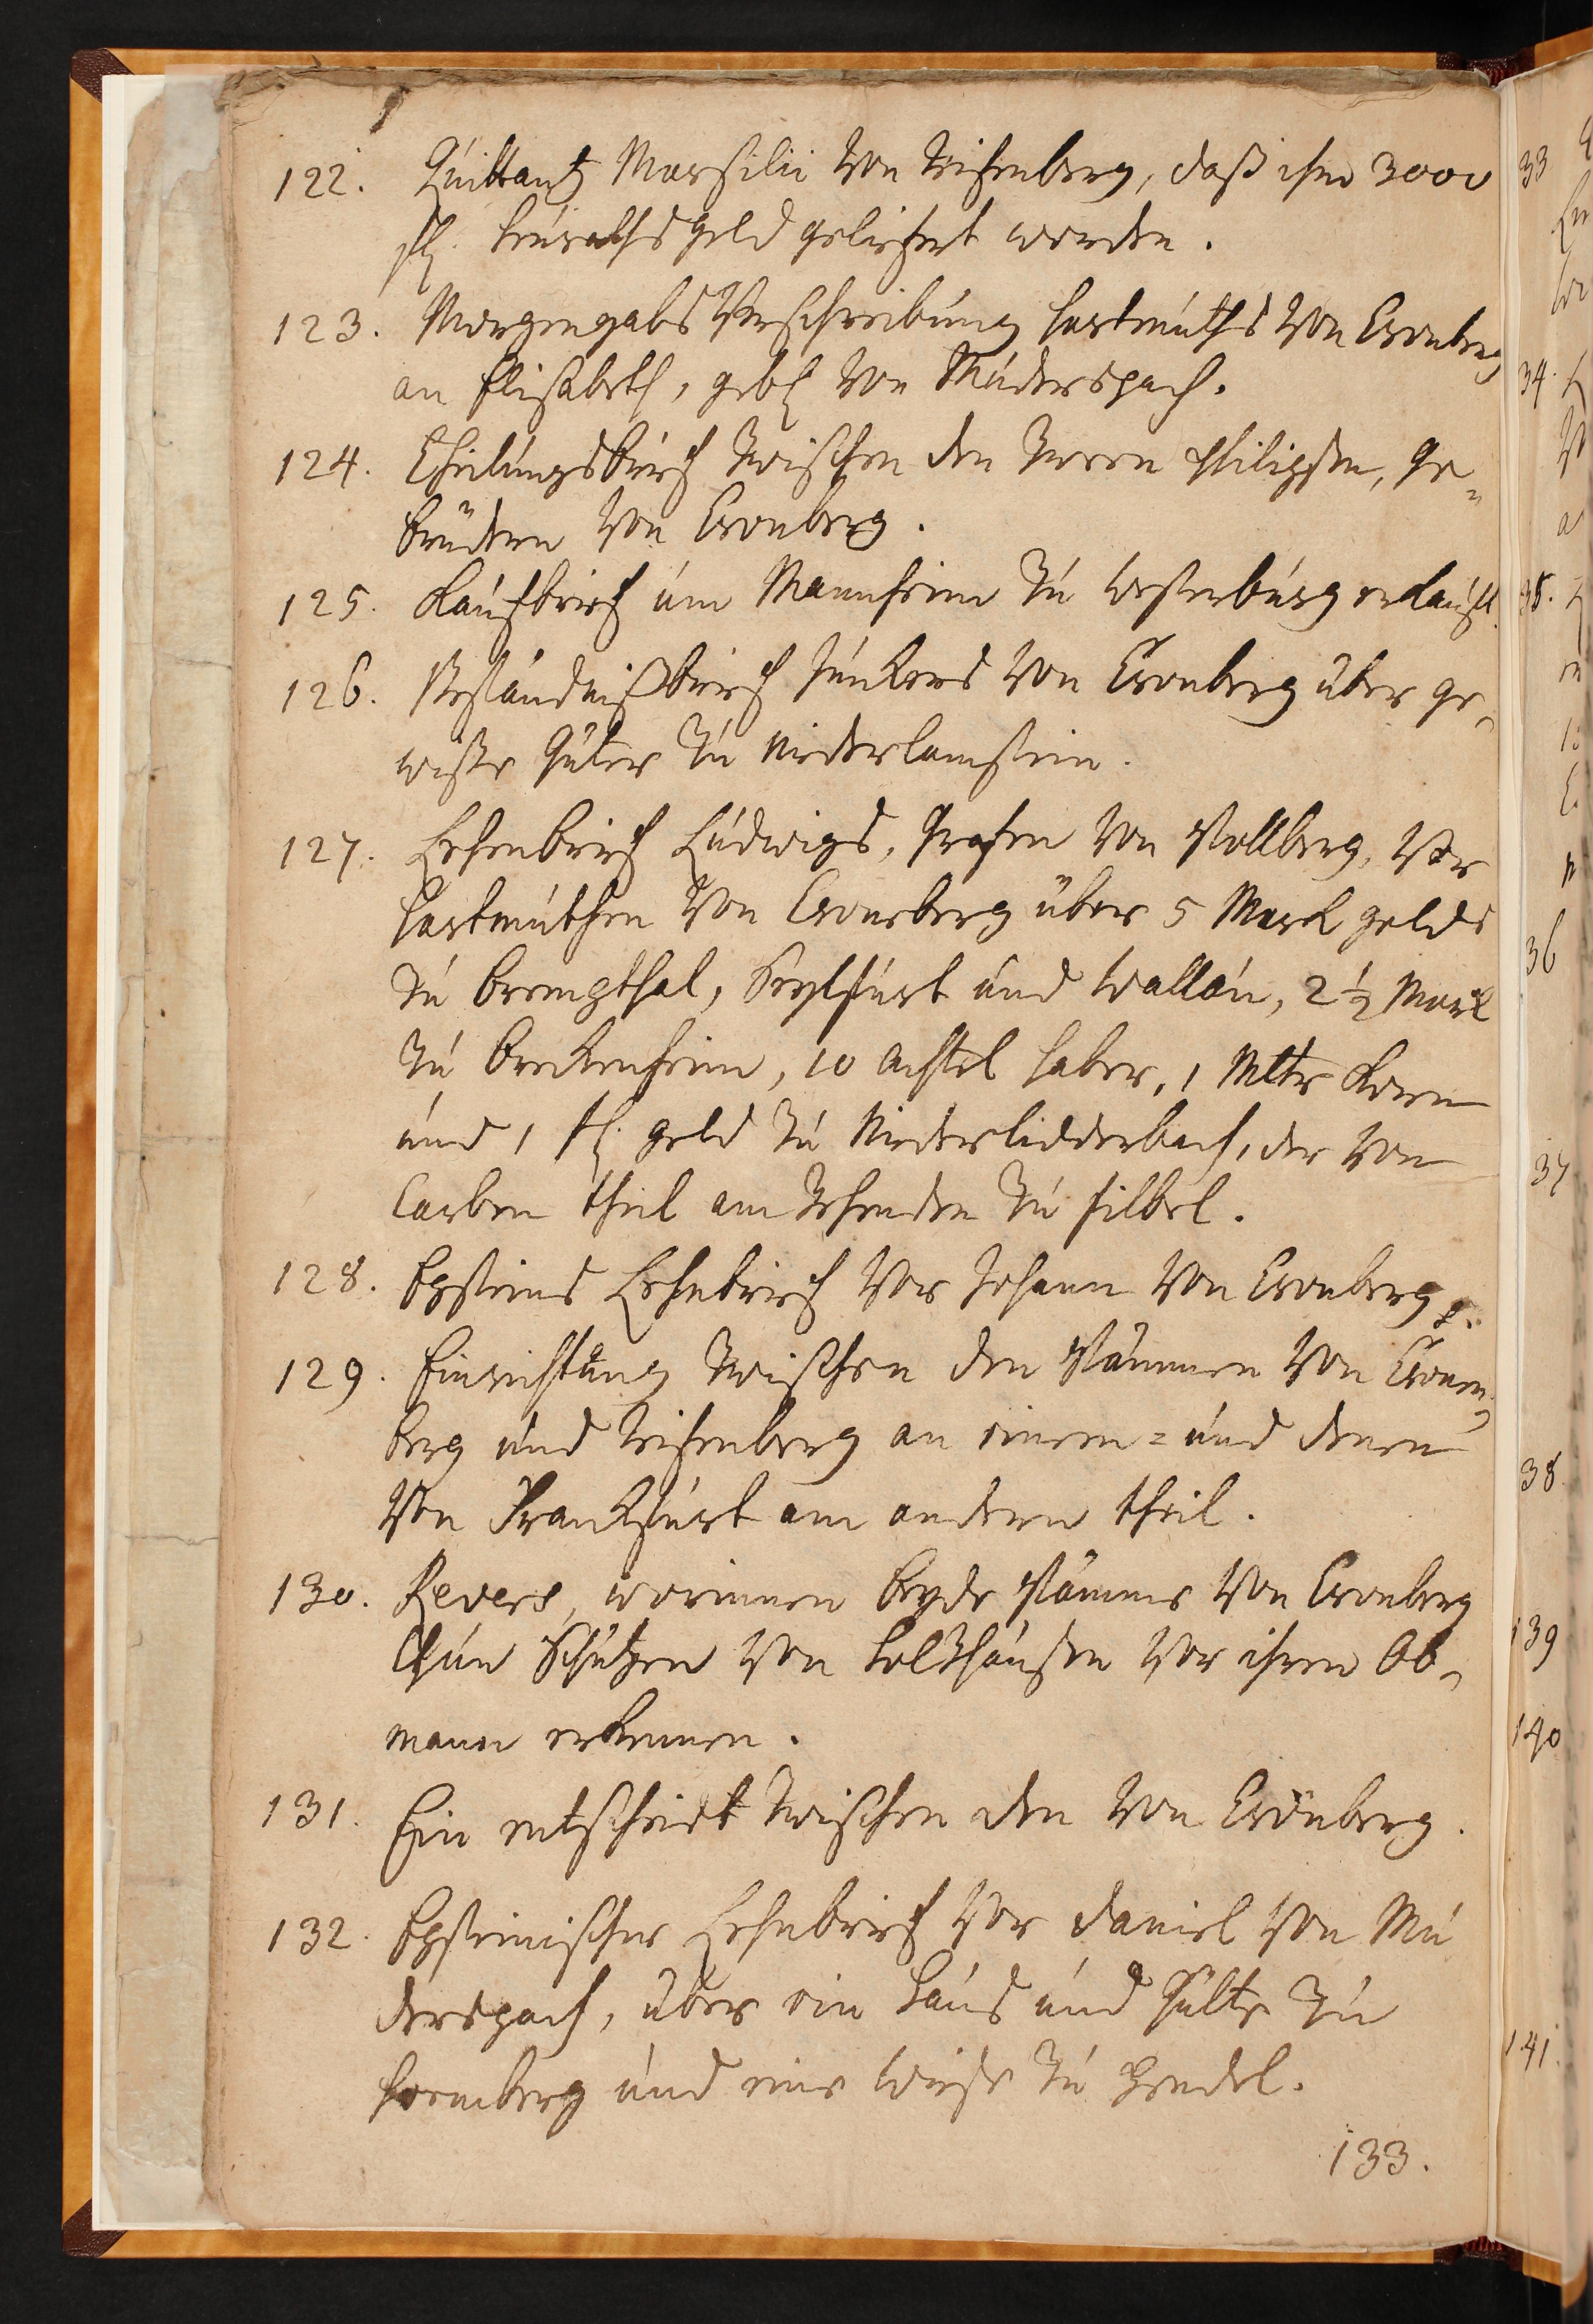 122. Quittantz Marsilii von Reifenberg, daß ihm 3000
fl. heuraths Geld geliefert worden.
123. Morgengabs Verschreibung Hartmuths von Cronberg
an Elisabeth, geb. von Muderspach.
124. Theilungsbrief zwischen den zween Philipsen, Ge¬
brüdern von Cronberg.
125. Kaufbrief um Mannheim zu Westerburg erkauft.
126. Beständnißbrief Junkers von Cronberg über ge¬
wiße Güter zu Niederlamstein.
127. Lehenbrief Ludwigs, Grafen von Stollberg, vor
Hartmuthen von Cronberg über 5 Mark gelds
zu Brempthal, Seylfurt und Wallau, 2 1/2 Mark
zu Breckenheim, 10 Achtel haber, 1 Mltr Korn
und 1 fl. geld zu Niederlidderbach, der von
Carben theil am Zehenden zu Filbel.
128. Epsteins Lehnbrief vor Johann von Cronberg.
129. Einrichtung zwischen den Stämmen von Cronen¬
berg und Reifenberg an einem = und denen
von Franckfurt am andern theil.
130. Revers, worinnen beyde Stämme von Cronberg
Chun Schützen von Holtzhausen vor ihren Ob¬
mann erkennen.
131. Ein entscheidt zwischen den von Cronberg.
132. Epsteinischer Lehnbrief vor Daniel von Mu
derspach, über ein Haus und Gülte zu
Hormberg und eine Wiese zu Hendel.
133.
33
34.
35.
36
37
38
139
140
141.